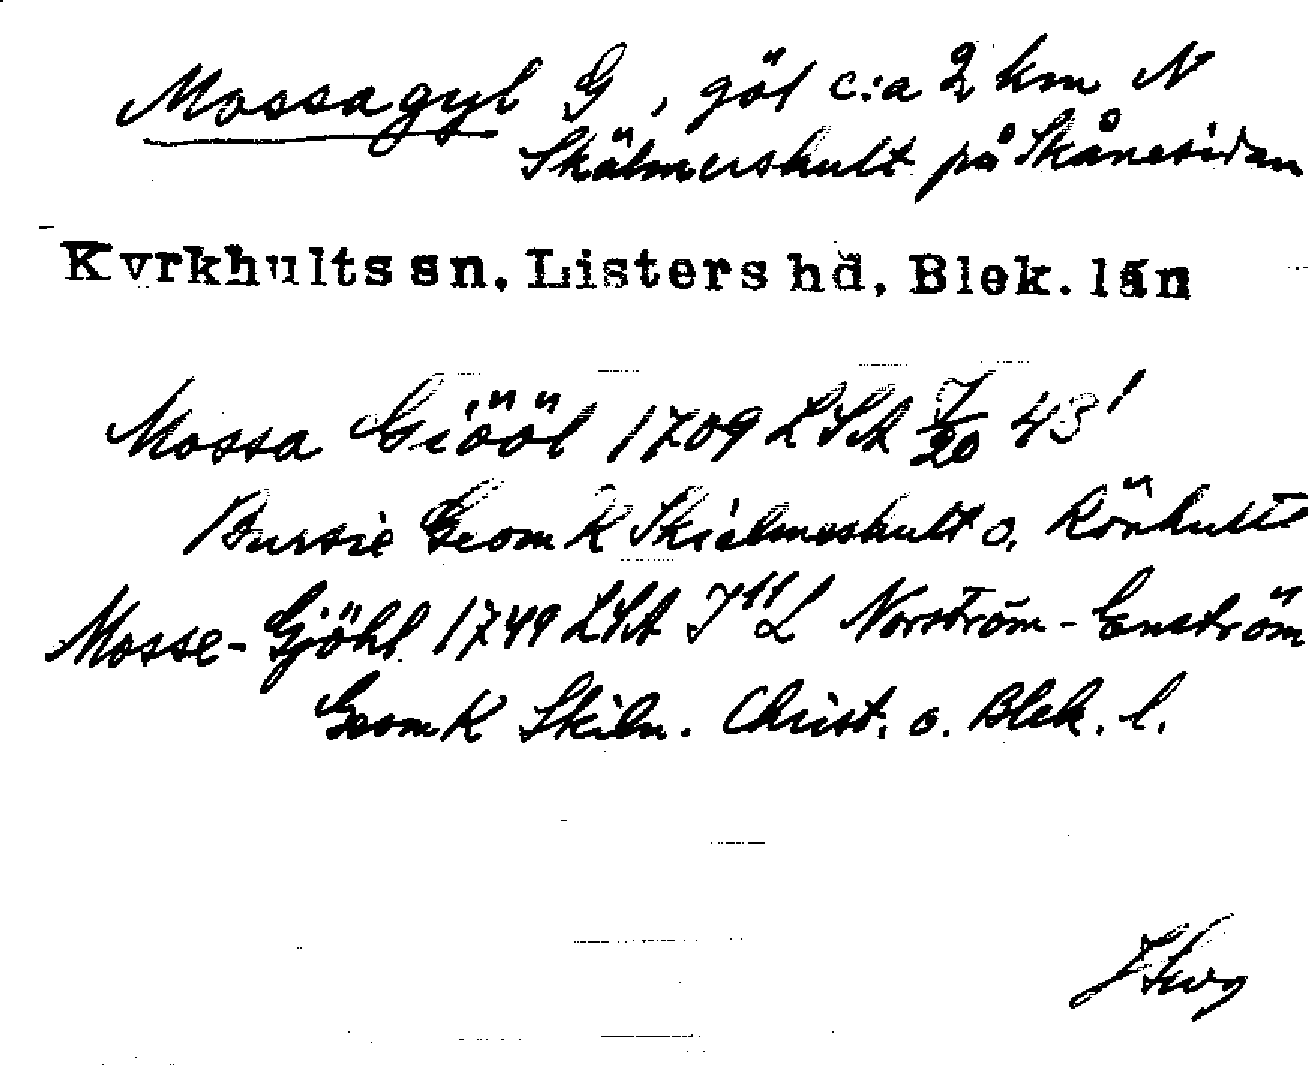 Mossagyl G, göl c:a 2 km N
Skälmershult på Skånesidan
Kyrkhults sn, Listers hd, Blek. län
Mossa Giööl 1709 LSA 7/20 43'
Bursie Geom K Skielmeshult o. Rönhult
Mosse-Gjöhl 1749 LSA Norström-Enström
Geom K Skiln. Christ. o. Blek. l.